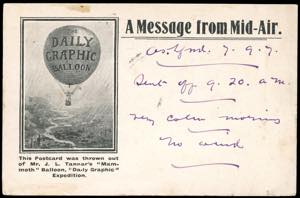 A Message from Mid-Air.
DAILY
GRAPHIC
BALLOON
7. 9. 7.
Sent off 9.20. a.m.
very calm morning
no wind
This Postcard was thrown out
of Mr. J. L. Tannar's "Mam-
moth" Balloon, "Daily Graphic"
Expedition.